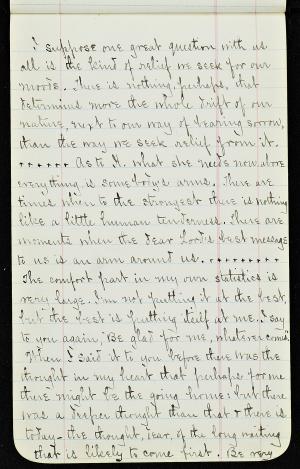 I suppose one great question with us
all is the kind of relief we seek for our
moods. There is nothing, perhaps, that
determines more the whole drift of our
nature, next to our way of bearing sorrow,
than the way we seek relief from it.
...... As to H. what she needs now above
everything is somebody's arms. There are
times when to the strongest there is nothing
like a little human tenderness. There are
moments when the dear Lord's best message
to us is an arm around us. .........
The comfort part in my own statistics is
very large. I'm not putting it at the best,
but the best is putting itself at me. I say
to you again, "Be glad for me, whatever comes."
When I said it to you before there was the
thought in my heart that perhaps for me
there might be the going home: but there
was a deeper thought than that & there is
today - the thought, dear, of the long waiting
that is likely to come first. Be very